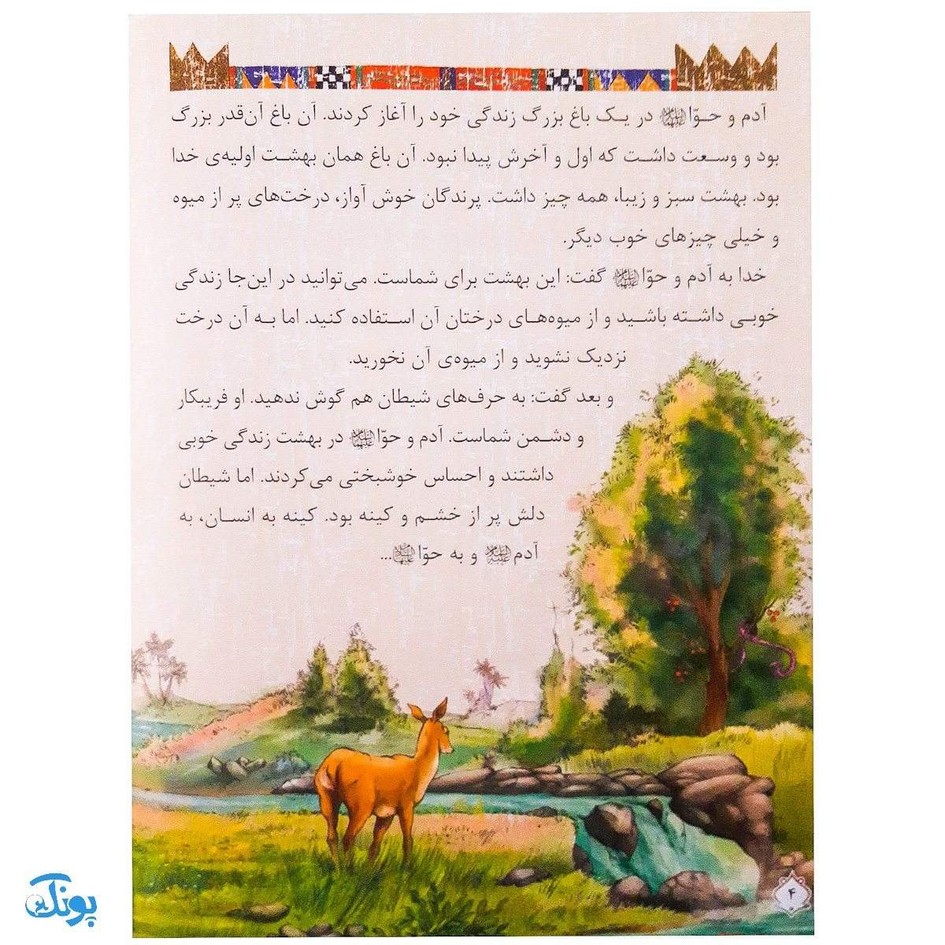 آدم و حوّا در یک باغ بزرگ زندگی خود را آغاز کردند. آن باغ آن‌قدر بزرگ
بود و وسعت داشت که اول و آخرش پیدا نبود. آن باغ همان بهشت اولیه‌ی خدا
بود. بهشت سبز و زیبا، همه چیز داشت. پرندگان خوش آواز، درخت‌های پر از میوه
و خیلی چیزهای خوب دیگر.
خدا به آدم و حوّا گفت: این بهشت برای شماست. می‌توانید در این‌جا زندگی
خوبی داشته باشید و از میوه‌های درختان آن استفاده کنید. اما به آن درخت
نزدیک نشوید و از میوه‌ی آن نخورید.
و بعد گفت: به حرف‌های شیطان هم گوش ندهید. او فریبکار
و دشمن شماست. آدم و حوّا در بهشت زندگی خوبی
داشتند و احساس خوشبختی می‌کردند. اما شیطان
دلش پر از خشم و کینه بود. کینه به انسان، به
آدم و به حوّا ...
۴
پونک